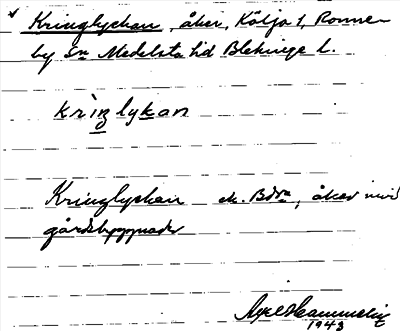 Kringlyckan, åker, Kölja 1, Ronne-
by Sn Medelsta hd Blekinge l.
krìŋlykan
Kringlyckan ek. , åker mid
gårdsbyggnader
Axel Hammelin
1943